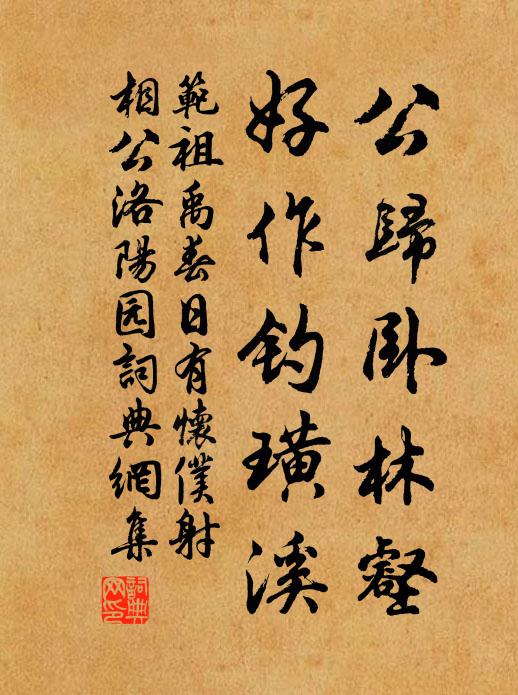 公歸卧林壑
好作釣璜溪
範祖禹春日有懷僕射
相公洛陽园詞典網集
詞典網印